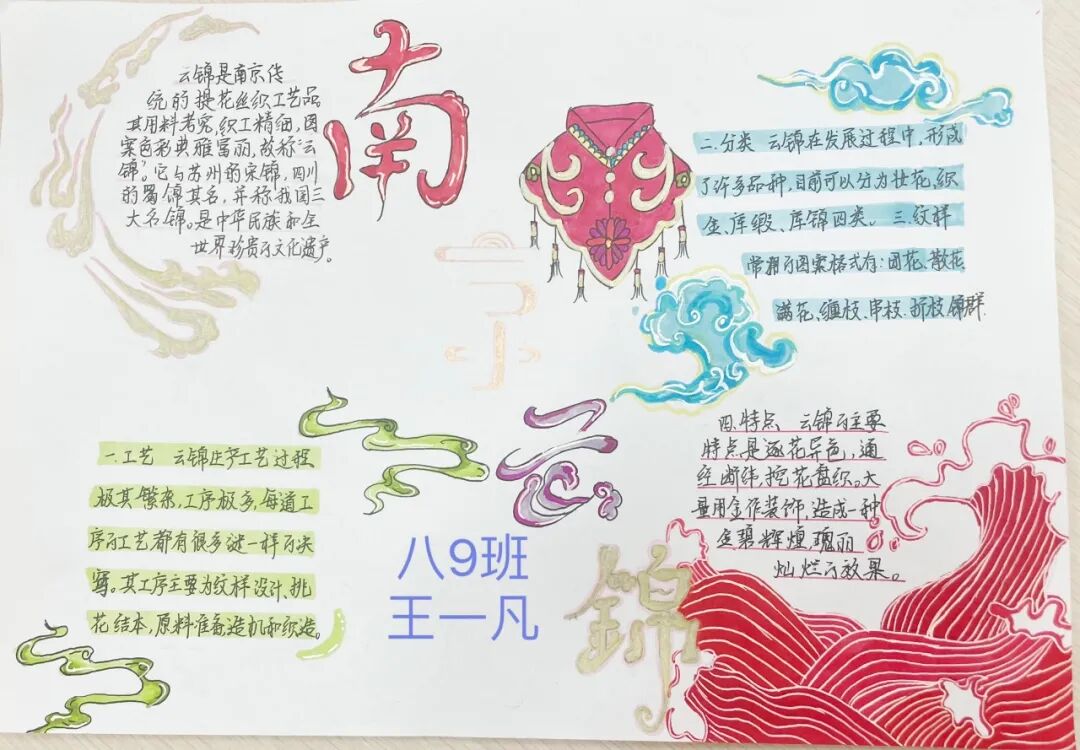 南京云錦
云锦是南京传
统的提花丝织工艺品
其用料考究,织工精细,图
案色彩典雅富丽,故称“云
锦”。它与苏州的宋锦,四川
的蜀锦其名,并称我国三
大名锦。是中华民族和全
世界珍贵的文化遗产。
二.分类 云锦在发展过程中,形成
了许多品种,目前可以分为妆花,织
金、库缎、库锦四类。三.纹样
常用的图案格式有:团花、散花
满花、缠枝、串枝、折枝锦群.
一.工艺 云锦生产工艺过程
极其繁杂,工序极多,每道工
序的工艺都有很多谜一样的
其工序主要为纹样设计、挑
花结本,原料准备造机和织造。
四.特点 云锦的主要
特点是逐花异色,通
经断纬,挖花盘织。大
量用金作装饰,造成一种
金碧辉煌,瑰丽
灿烂的效果。
八9班
王一凡